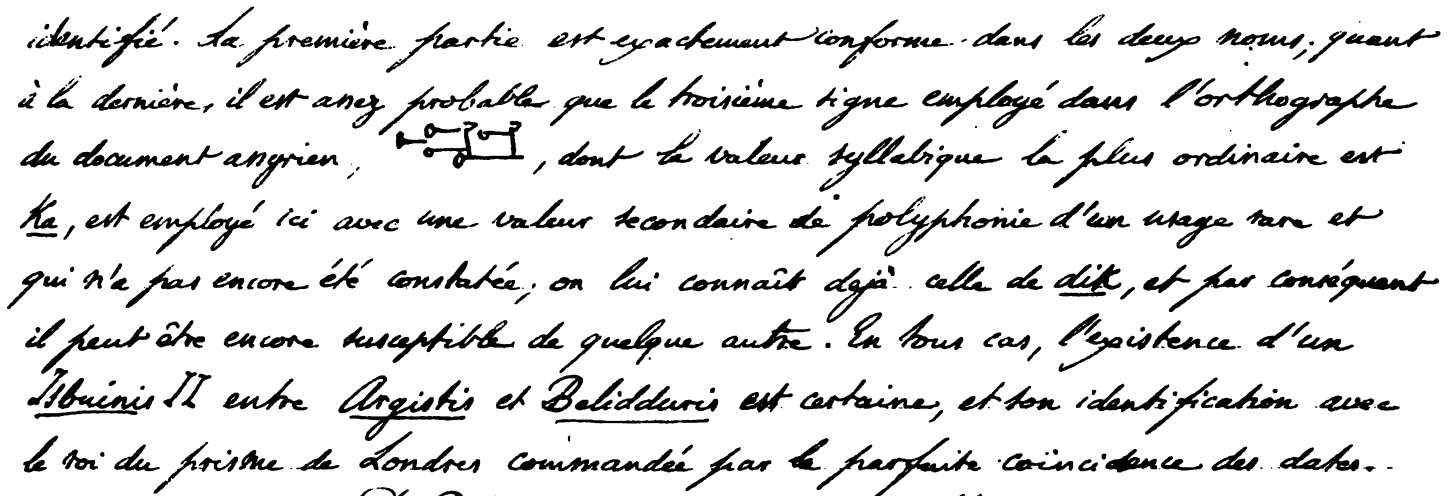 identifié. La première partie est exactement conforme dans les deux noms; quant
à la dernière, il est assez probable que le troisième signe employé dans l'orthographe
du document assyrien, , dont la valeur syllabique la plus ordinaire est
Ka, est employé ici avec une valeur secondaire de polyphonie d'un usage rare et
qui n'a pas encore été constatée; on lui connaît dejà celle de dik, et par conséquent
il peut être encore susceptible de quelque autre. En tous cas, l'existence d'un
Isbuinis II entre Argistis et Belidduris est certaine, et son identification avec
le roi du prisme de Londres commandée par la parfaite coïncidence des dates.